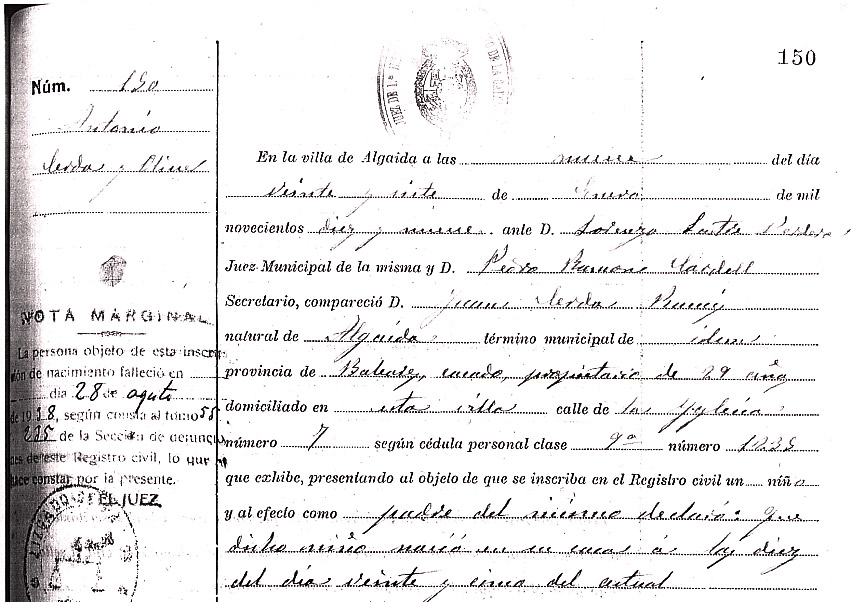 150
Núm. 150
Antonio
Cerdá y Oliver
NOTA MARGINAL
La persona objeto de esta inscrip
ción de nacimiento falleció en
día 28 de agosto
de 19 8, según consta al tomo 55
235 de la Sección de defuncio
nes de este Registro civil, lo que
hace constar por la presente.
EL JUEZ
En la villa de Algaida a las nueve del día
veinte y siete de Enero de mil
novecientos diez y nueve ante D. Lorenzo
Juez Municipal de la misma y D. Pedro Ramon Sardell
Secretario, compareció D. Juan Cerdá
natural de Algaida término municipal de idem
provincia de Baleares, casado, propietario de 29 años
domiciliado en esta villa calle de la Yglesia
número 7 según cédula personal clase 9ª número 1235
que exhibe, presentando al objeto de que se inscriba en el Registro civil un niño
y al efecto como padre del mismo declaró: que
dicho niño nació en su casa á las diez
del día veinte y cinco del actual